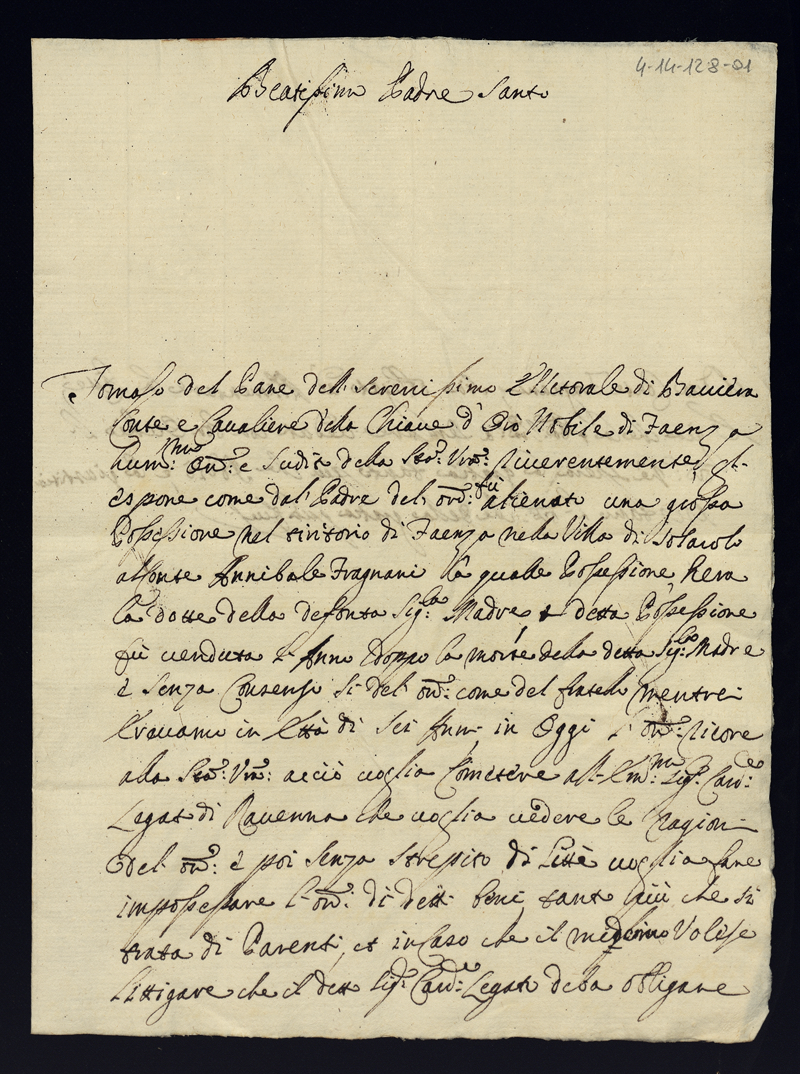 4-14-128-01
Beatissimo Padre Santo
Tomaso del Pane dell Serenissimo Ellettorale di Baviera
Conte e Cavaliere della Chiave d' Oro Nobile di Faenza
hum:mo Ore: e Sudit della Sta: Vra: riverentemente gl-
espone come dal Padre del ore: fù alienato una grossa
Possessione nel tiritorio di Faenza nella Villa di Solarolo
al Conte Annibale Fragnani la qualle Possessione hera
la dotte della defonta Sig:ra Madre e detta Possessione
fù venduta l' Anno doppo la morte della detta Sig:ra Madre
e senza Consenso si del ore: come del fratello mentre
Eravamo in Ettà di sei Anni in Oggi l' ore: ricore
alla Sta: Vra: acciò voglia Cometere all- Em:mo Sig: Card:le
Legato di Ravenna che voglia vedere le ragion-
del ore: e poi senza strepito di Litte voglia fare
impossessare l' ore: di dett- beni tanto più che si
trata di Parenti, et in Caso che il medemo Volese
Littigare che il detto Sig: Card:le Legato deba obligare